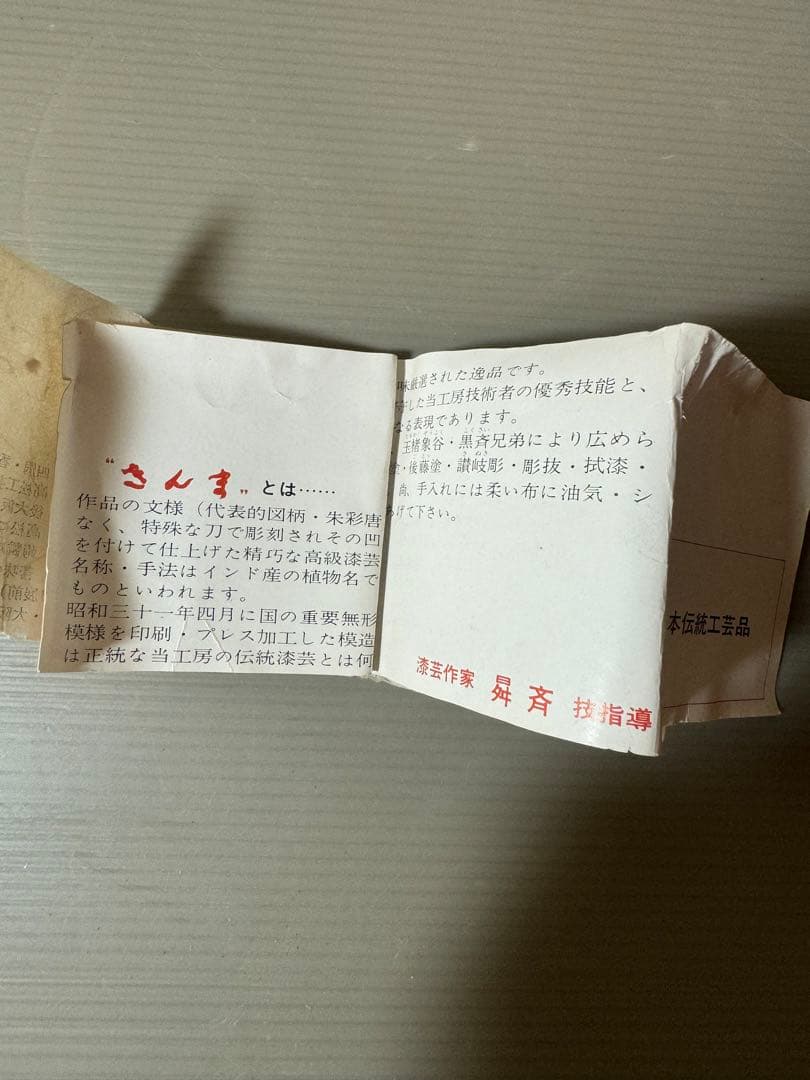 "きんま"とは……
作品の文様(代表的図柄・朱彩唐
なく、特殊な刀で彫刻されその凹
を付けて仕上げた精巧な高級漆芸
名称・手法はインド産の植物名で
ものといわれます。
昭和三十一年四月に国の重要無形
模様を印刷・プレス加工した模造
は正統な当工房の伝統漆芸とは何
厳選された逸品です。
した当工房技術者の優秀技能と、
る表現であります。
玉楮象谷・黒斉兄弟により広めら
・後藤塗・讃岐彫・彫抜・拭漆・
尚、手入れには柔い布に油気・シ
げて下さい。
漆芸作家 舁斉 技指導
本伝統工芸品